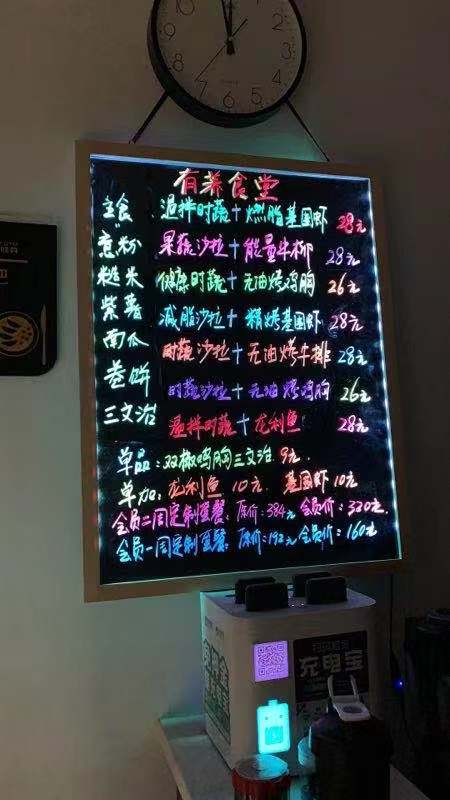 有养食堂
主食 温拌时蔬+燃脂基围虾 28元
意粉 果蔬沙拉+能量牛柳 28元
糙米 健康时蔬+无油烤鸡胸 26元
紫薯 减脂沙拉+精烤基围虾 28元
南瓜 时蔬沙拉+无油烤牛排 28元
卷饼 时蔬沙拉+无油烤鸡胸 26元
三文治 温拌时蔬+龙利鱼 28元
单品:双椒鸡胸三文治 9元.
单加:龙利鱼 10元. 基围虾 10元
会员二周定制蛋餐. 原价:384元 会员价:320元.
会员一周定制蛋餐. 原价:192元 会员价:160元
充电宝